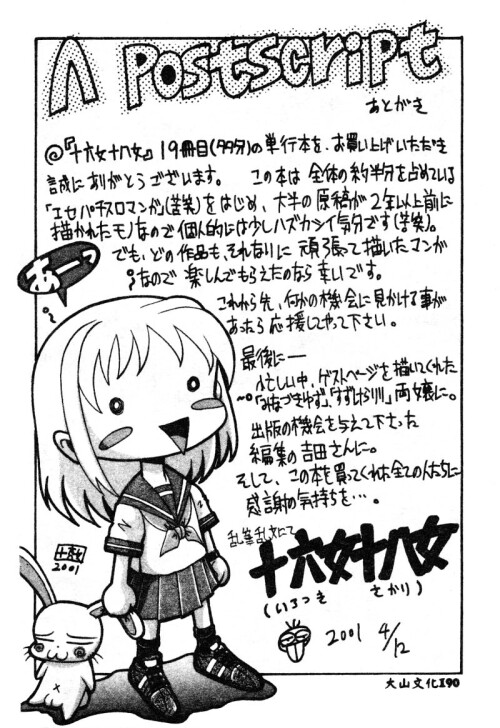 A Postscript
あとがき
◎『十六女十八女』19冊目(タタ分)の単行本を、お買い上げいただき
誠にありがとうございます。 この本は全体の約半分を占めている
「エセパチスロマンガ」(苦笑)をはじめ、大半の原稿が2年以上前に
描かれたモノなので個人的には少しハズカシイ気分です(苦笑)。
でも、どの作品も、それなりに頑張って描いたマンガ
なので楽しんでもらえたのなら幸いです。
これから先、何かの機会に見かける事が
あったら応援してやって下さい。
あーっ
最後に―
忙しい中、ゲストページを描いてくれた
「みなづきゆず」「すずけらりり」両嬢に。
出版の機会を与えて下さった
編集の吉田さんに。
そして、この本を買ってくれた全ての人たちに
感謝の気持ちを…。
乱筆乱文にて
十六女十八女
(いろつき さかり)
2001 4/12
2001
大山文化190